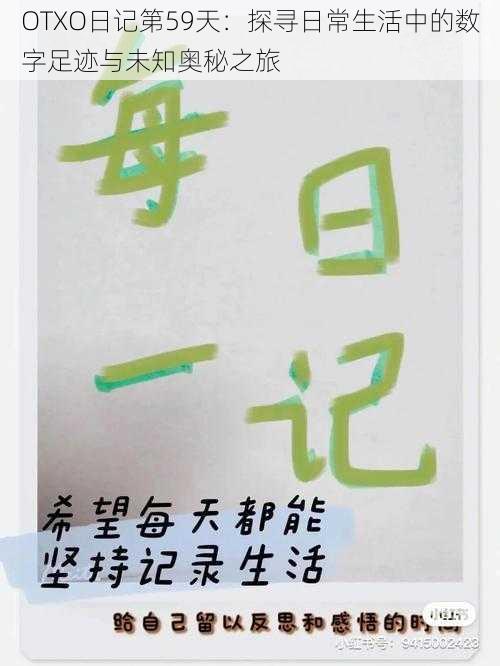 OTXO日记第59天：探寻日常生活中的数
字足迹与未知奥秘之旅
每日
一记
希望每天都能
坚持记录生活
给自己留以反思和感悟的时
小红书
小红书号：9415002423